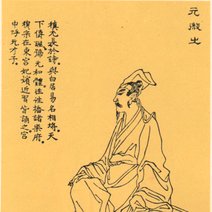 元微之
稹尤長於詩與白居易名相埒天
下傳諷號元和體往往播諸樂府
穆宗在東宮妃嬪近習皆誦之宮
中呼元才子